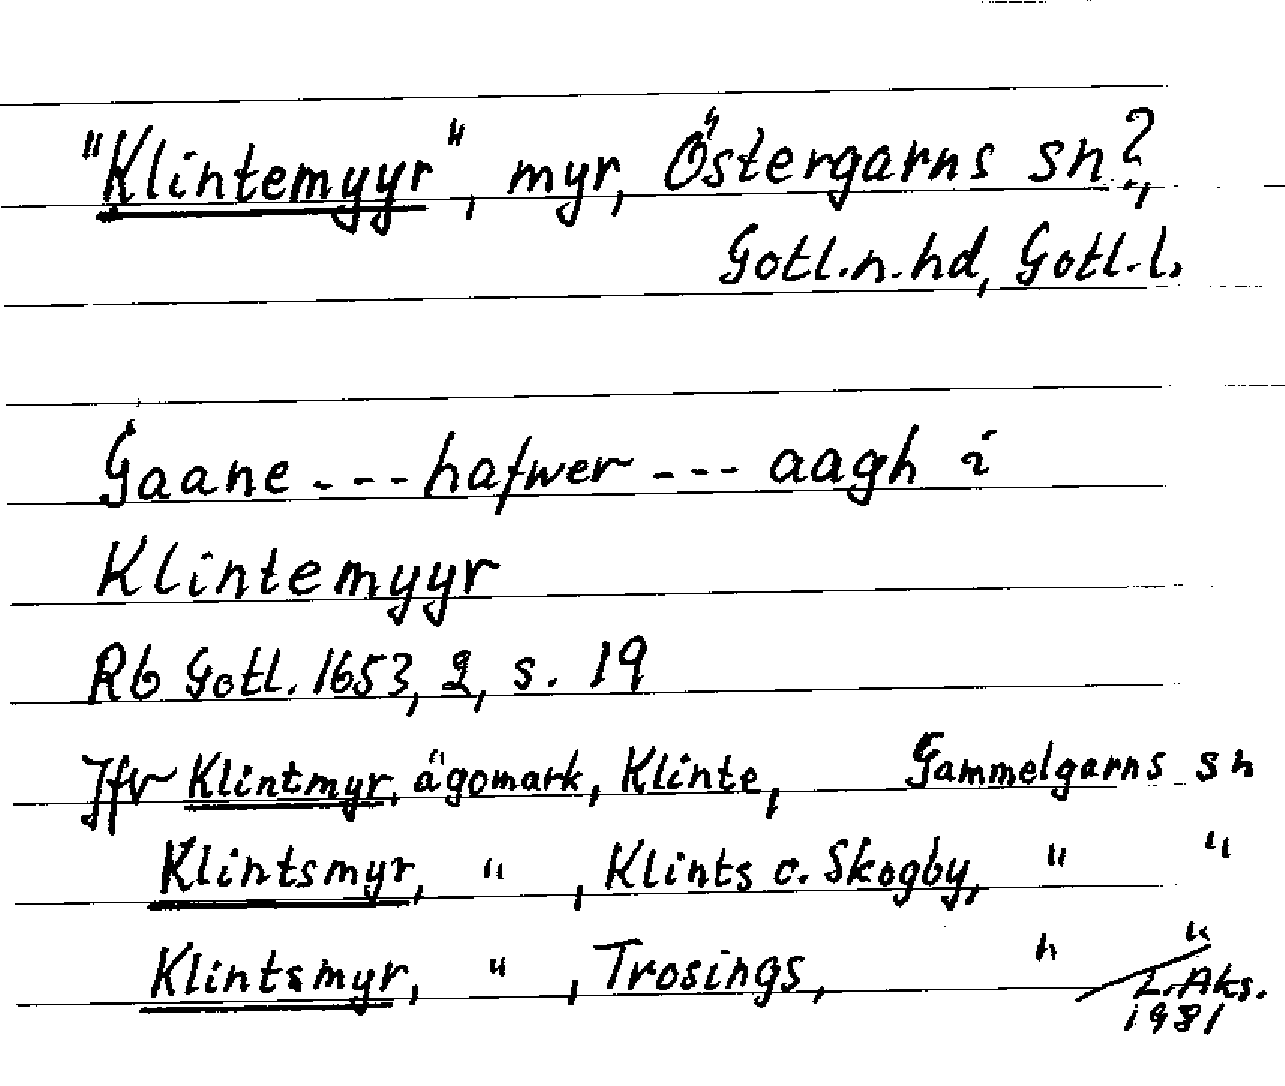 "Klintemyyr", myr, Östergarns sn?,
Gotl.n.hd, Gotl.l.
Gaane --- hafwer --- aagh i
Klintemyyr
Rb Gotl. 1653, 2, s. 19
Jfr Klintmyr, ägomark, Klinte, Gammelgarns sn
Klintsmyr, " , Klints o. Skogby, " "
Klintsmyr, " , Trosings, " "
L. Aks.
1981